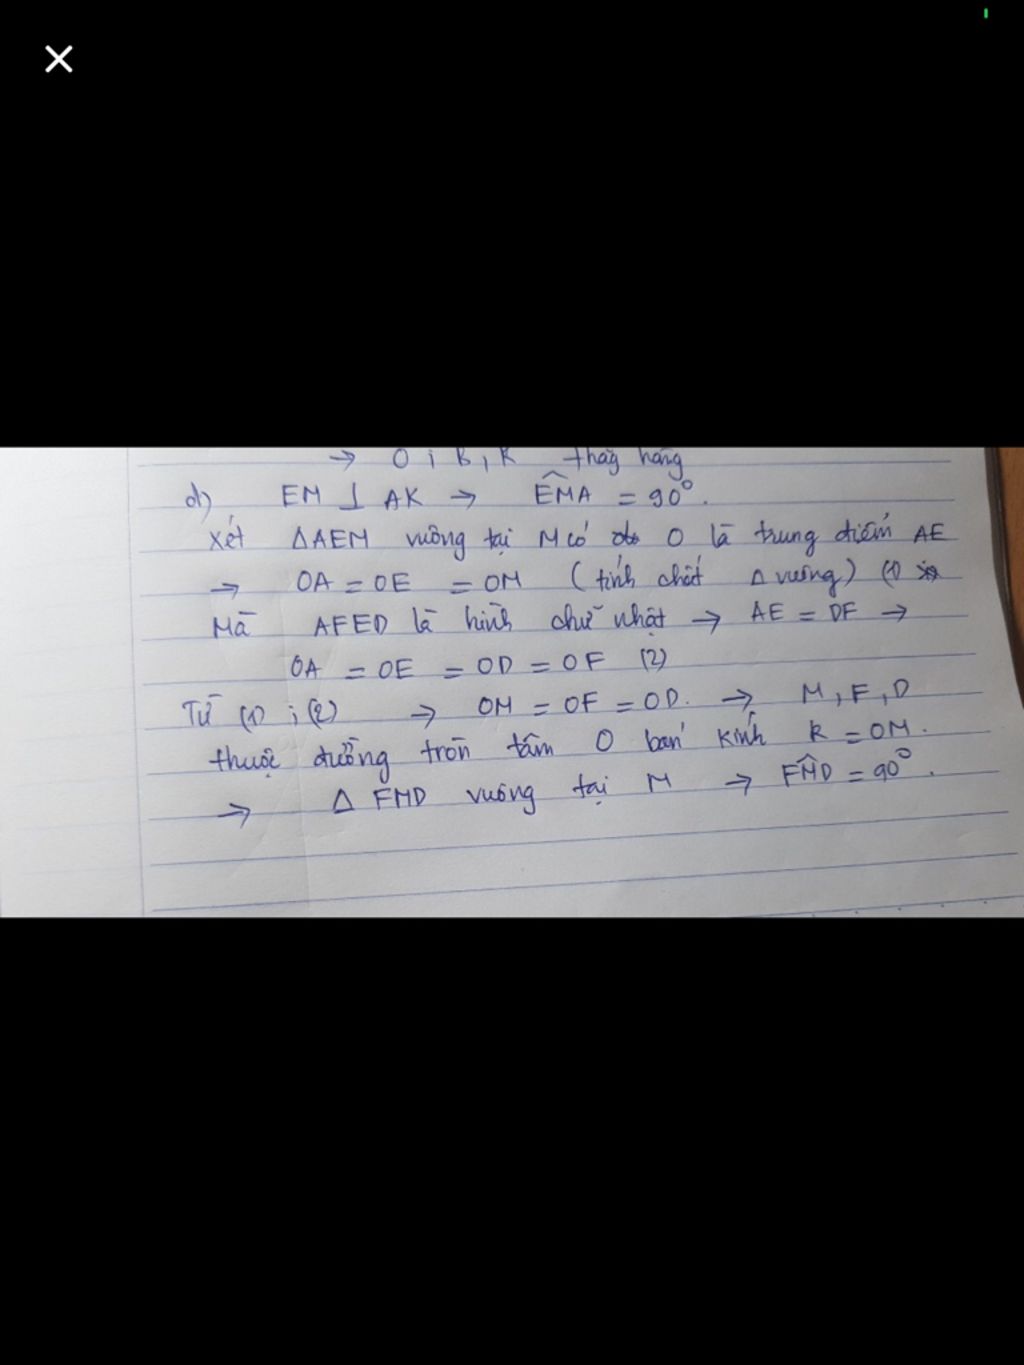 → O ; B, K thẳg hàng
d) EM ⊥ AK → \widehat{EMA} = 90°.
Xét ΔAEM vuông tại M có O là trung điểm AE
→ OA = OE = OM (tính chất Δ vuông) (1)
Mà AFED là hình chữ nhật → AE = DF →
OA = OE = OD = OF (2)
Từ (1) ; (2) → OM = OF = OD. → M, F, D
thuộc đường tròn tâm O bán kính R = OM.
→ Δ FMD vuông tại M → \widehat{FMD} = 90°.